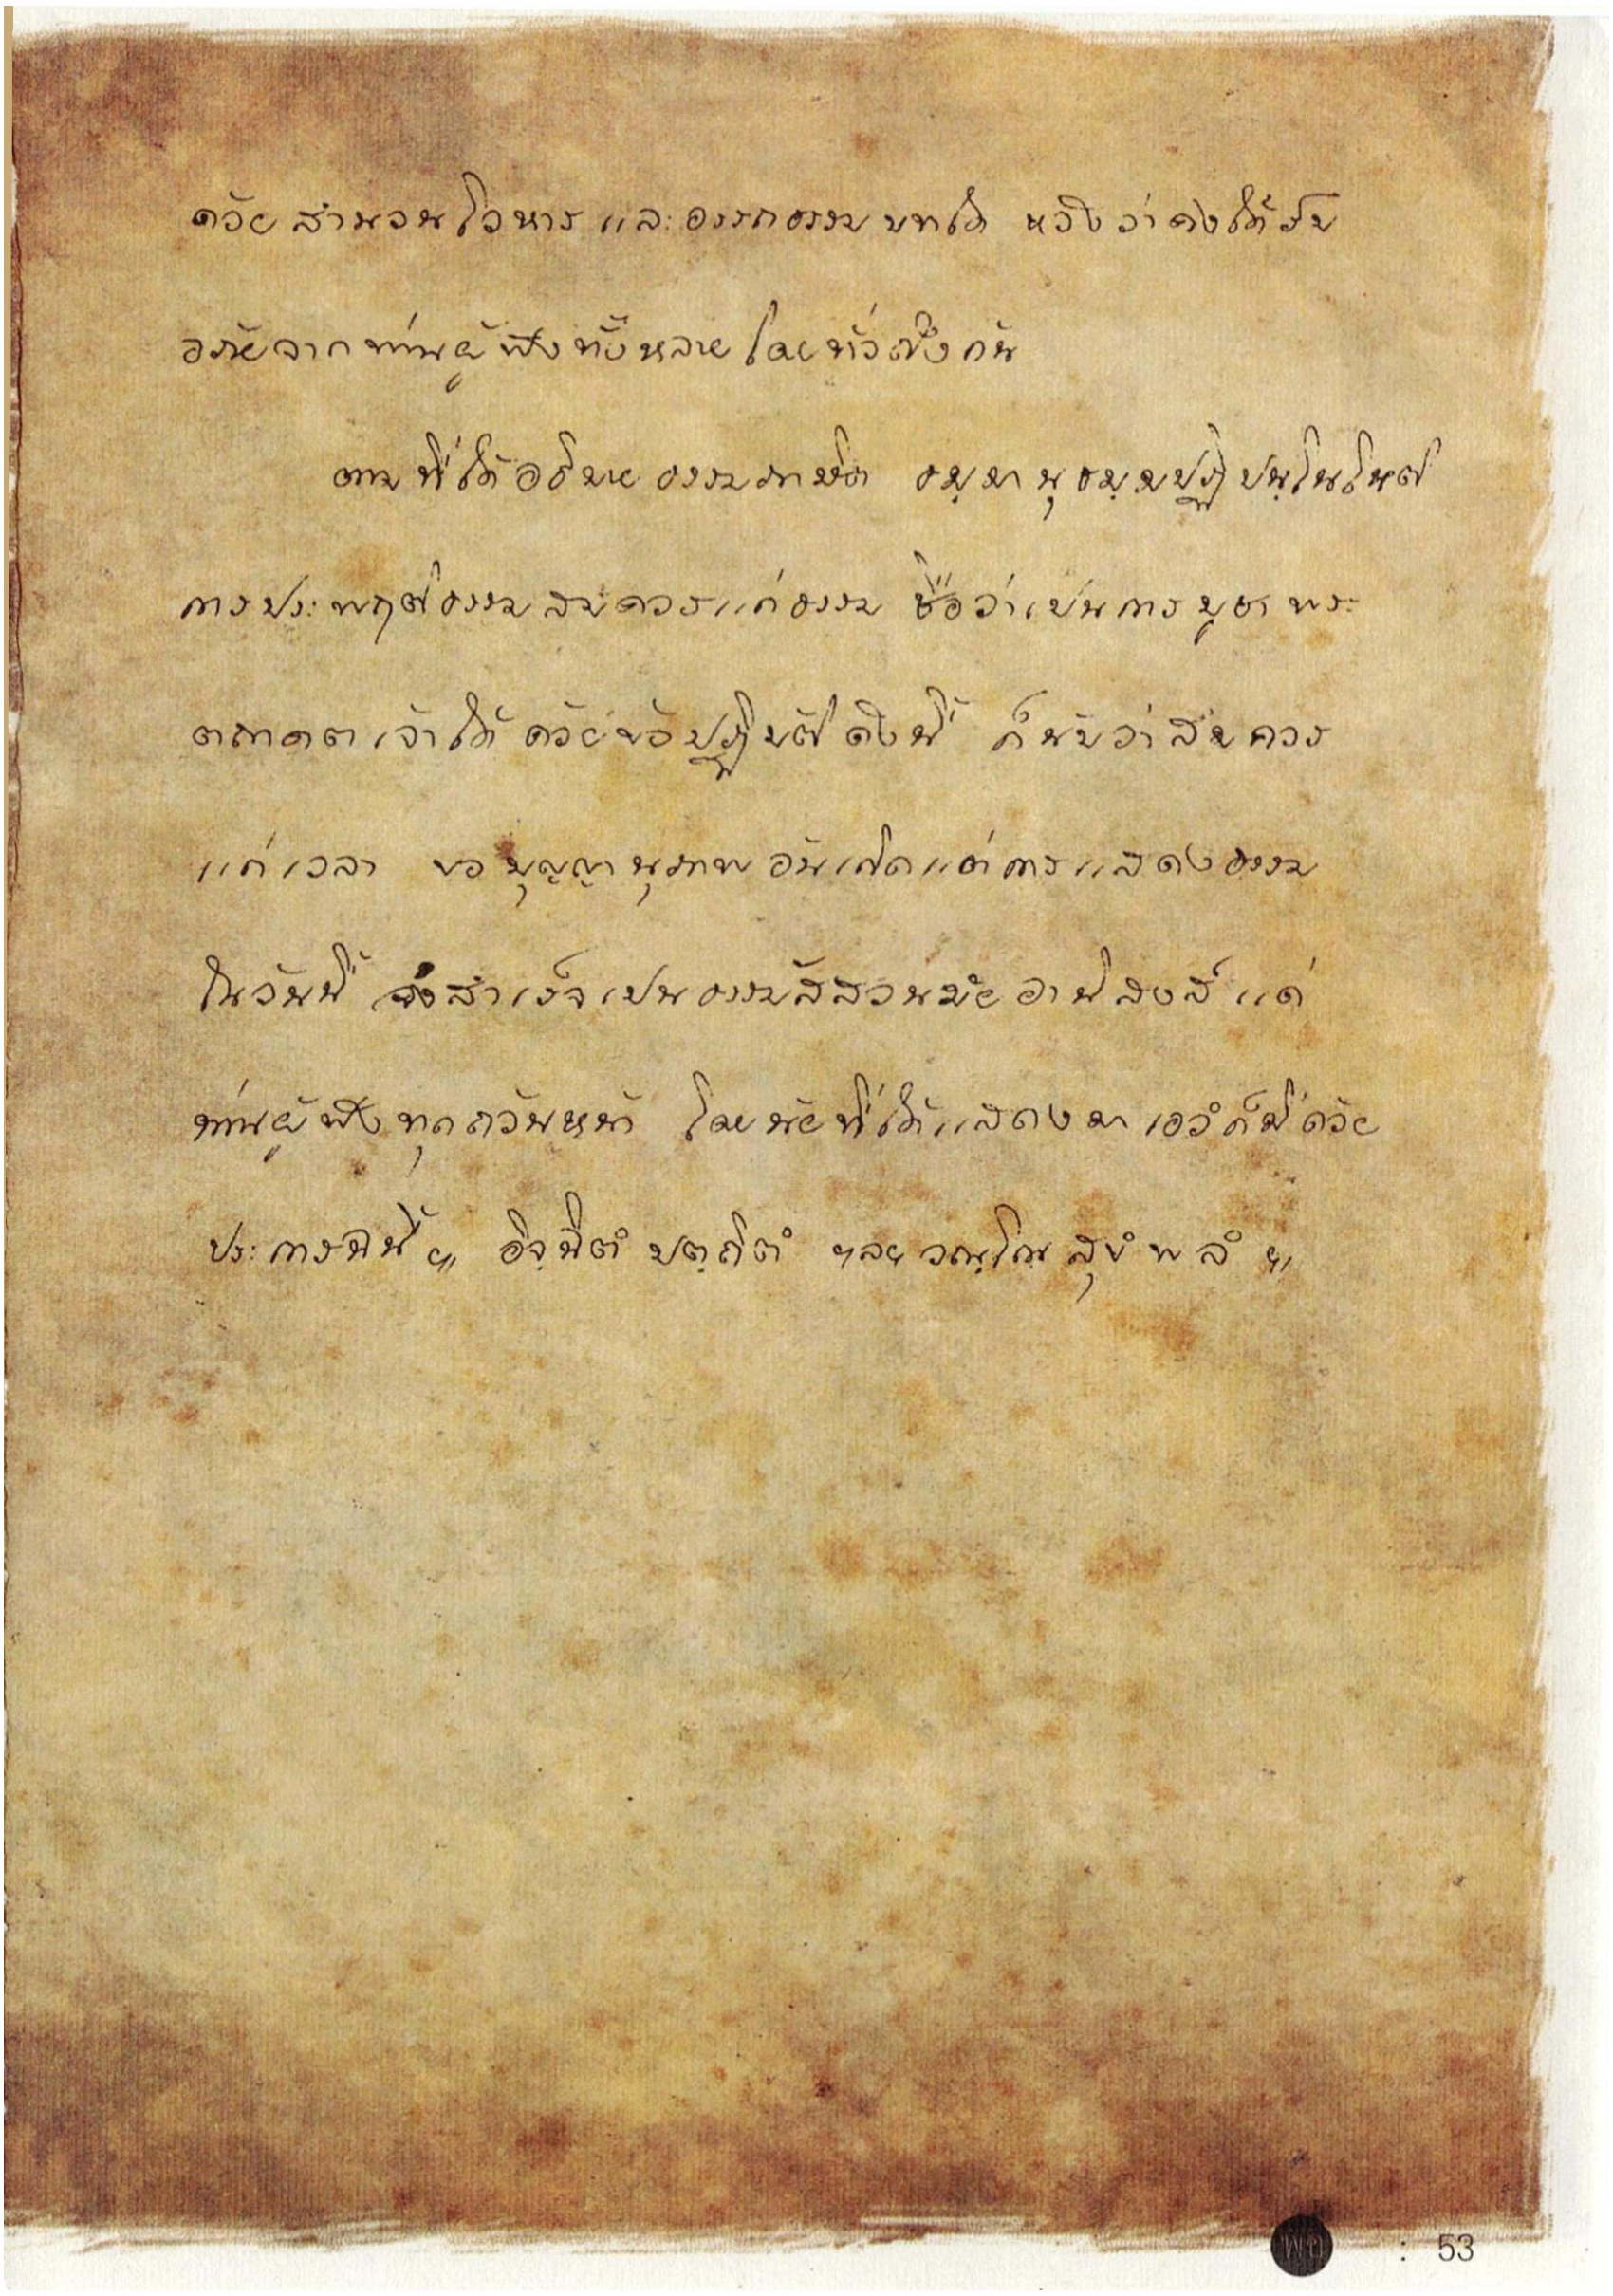 ด้วยสำนวนโวหาร และอรรถธรรมบทใด หวังว่าคงได้รับ
อภัยจากท่านผู้ฟังทั้งหลายโดยทั่วถึงกัน
ตามที่ได้อธิบายธรรมภาษิต ธมฺมานุธมฺมปฏิปนฺโนโหติ
การประพฤติธรรมสมควรแก่ธรรม ชื่อว่าเป็นการบูชาพระ
ตถาคตเจ้าได้ ด้วยข้อปฏิบัติดังนี้ ก็นับว่าสมควร
แก่เวลา ขอบุญญานุภาพอันเกิดแต่การแสดงธรรม
ในวันนี้ จงสำเร็จเป็นธรรมัสสวนมัย อานิสงส์ แด่
ท่านผู้ฟังทุกถ้วนหน้า โดยนัยที่ได้แสดงมา เอวํก็มีด้วย
ประการฉนี้ ฯ อิจฺฉิตํ ปตฺถิตํ ฯลฯ วณฺโณ สุขํ พลํ ฯ
: 53